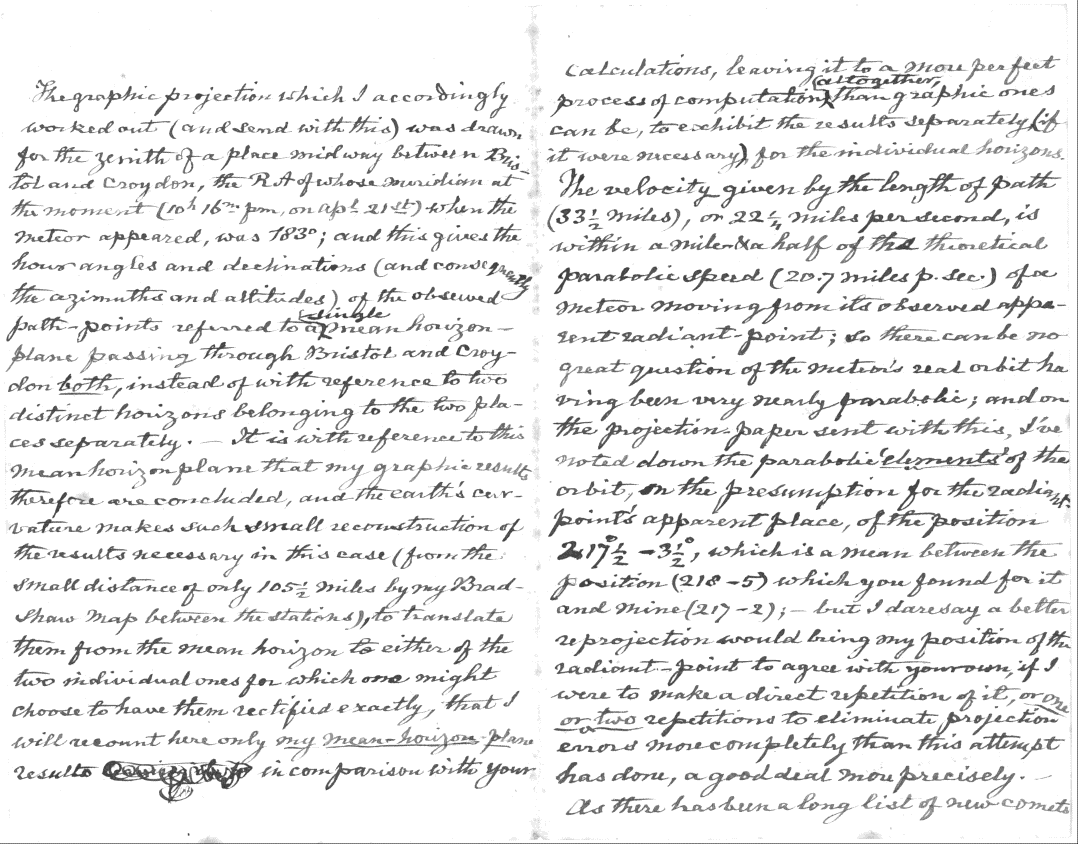 The graphic projection which I accordingly
worked out (and send with this) was drawn
for the zenith of a place midway between Bris-
tol and Croydon, the R.A of whose meridian at
the moment (10h 16m pm, on apl 21st) when the
meteor appeared, was 183°; and this gives the
hour angles and declinations (and consequently
the azimuths and altitudes) of the observed
single
path-points referred to a mean horizon-
plane passing through Bristol and Croy-
don both, instead of with reference to two
distinct horizons belonging to the two pla-
ces separately. — It is with reference to this
mean horizon plane that my graphic results
therefore are concluded, and the earth's cur-
vature makes such small reconstruction of
the results necessary in this case (from the
small distance of only 105½ miles by my Brad-
shaw map between the stations), to translate
them from the mean horizon to either of the
two individual ones for which one might
choose to have them rectified exactly, that I
will recount here only my mean-horizon-plane
results in comparison with your
calculations, leaving it to a more perfect
(altogether,
process of computation, than graphic ones
can be, to exhibit the results separately (if
it were necessary), for the individual horizons.
The velocity given by the length of path
(33½ miles), or 22¼ miles per second, is
within a mile & a half of the theoretical
parabolic speed (20.7 miles p. sec.) of a
meteor moving from its observed appa-
rent radiant-point; so there can be no
great question of the meteor's real orbit ha
ving been very nearly parabolic; and on
the projection-paper sent with this, I've
noted down the parabolic 'elements' of the
orbit, on the presumption for the radiant-
point's apparent place, of the position
217°½ -3½°, which is a mean between the
position (218 -5) which you found for it
and mine (217 -2); — but I daresay a better
reprojection would bring my position of the
radiant-point to agree with your own, if I
were to make a direct repetition of it, or one
or two repetitions to eliminate projection
errors more completely than this attempt
has done, a good deal more precisely. —
As there has been a long list of new comets